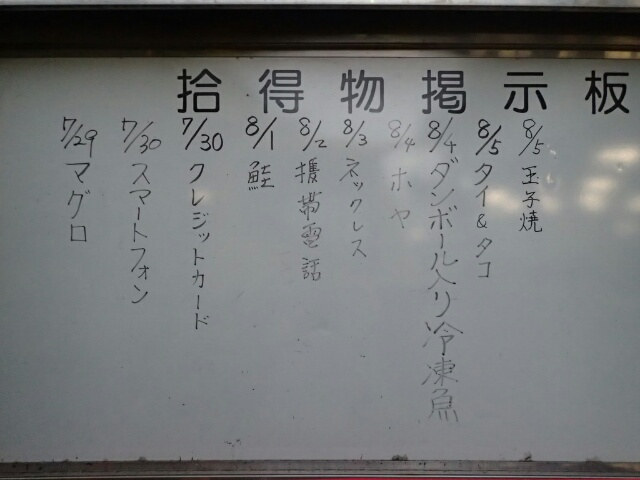 拾得物掲示板
8/5 玉子焼
8/5 タイ&タコ
8/4 ダンボール入り冷凍魚
8/4 ホヤ
8/3 ネックレス
8/2 携帯電話
8/1 鮭
7/30 クレジットカード
7/30 スマートフォン
7/29 マグロ